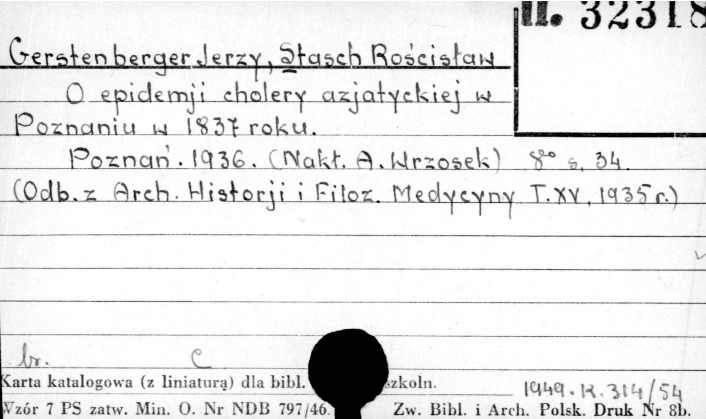 II. 32318
Gerstenberger Jerzy, Stasch Rościsław
O epidemji cholery azjatyckiej w
Poznaniu w 1837 roku.
Poznań. 1936. (Nakł. A. Wrzosek) 8° s. 34.
(Odb. z Arch. Historji i Filoz. Medycyny T. XV, 1935 r.)
br. C
Karta katalogowa (z liniaturą) dla bibl. szkoln.
1949. K. 314/54
Wzór 7 PS zatw. Min. O. Nr NDB 797/46. Zw. Bibl. i Arch. Polsk. Druk Nr 8b.